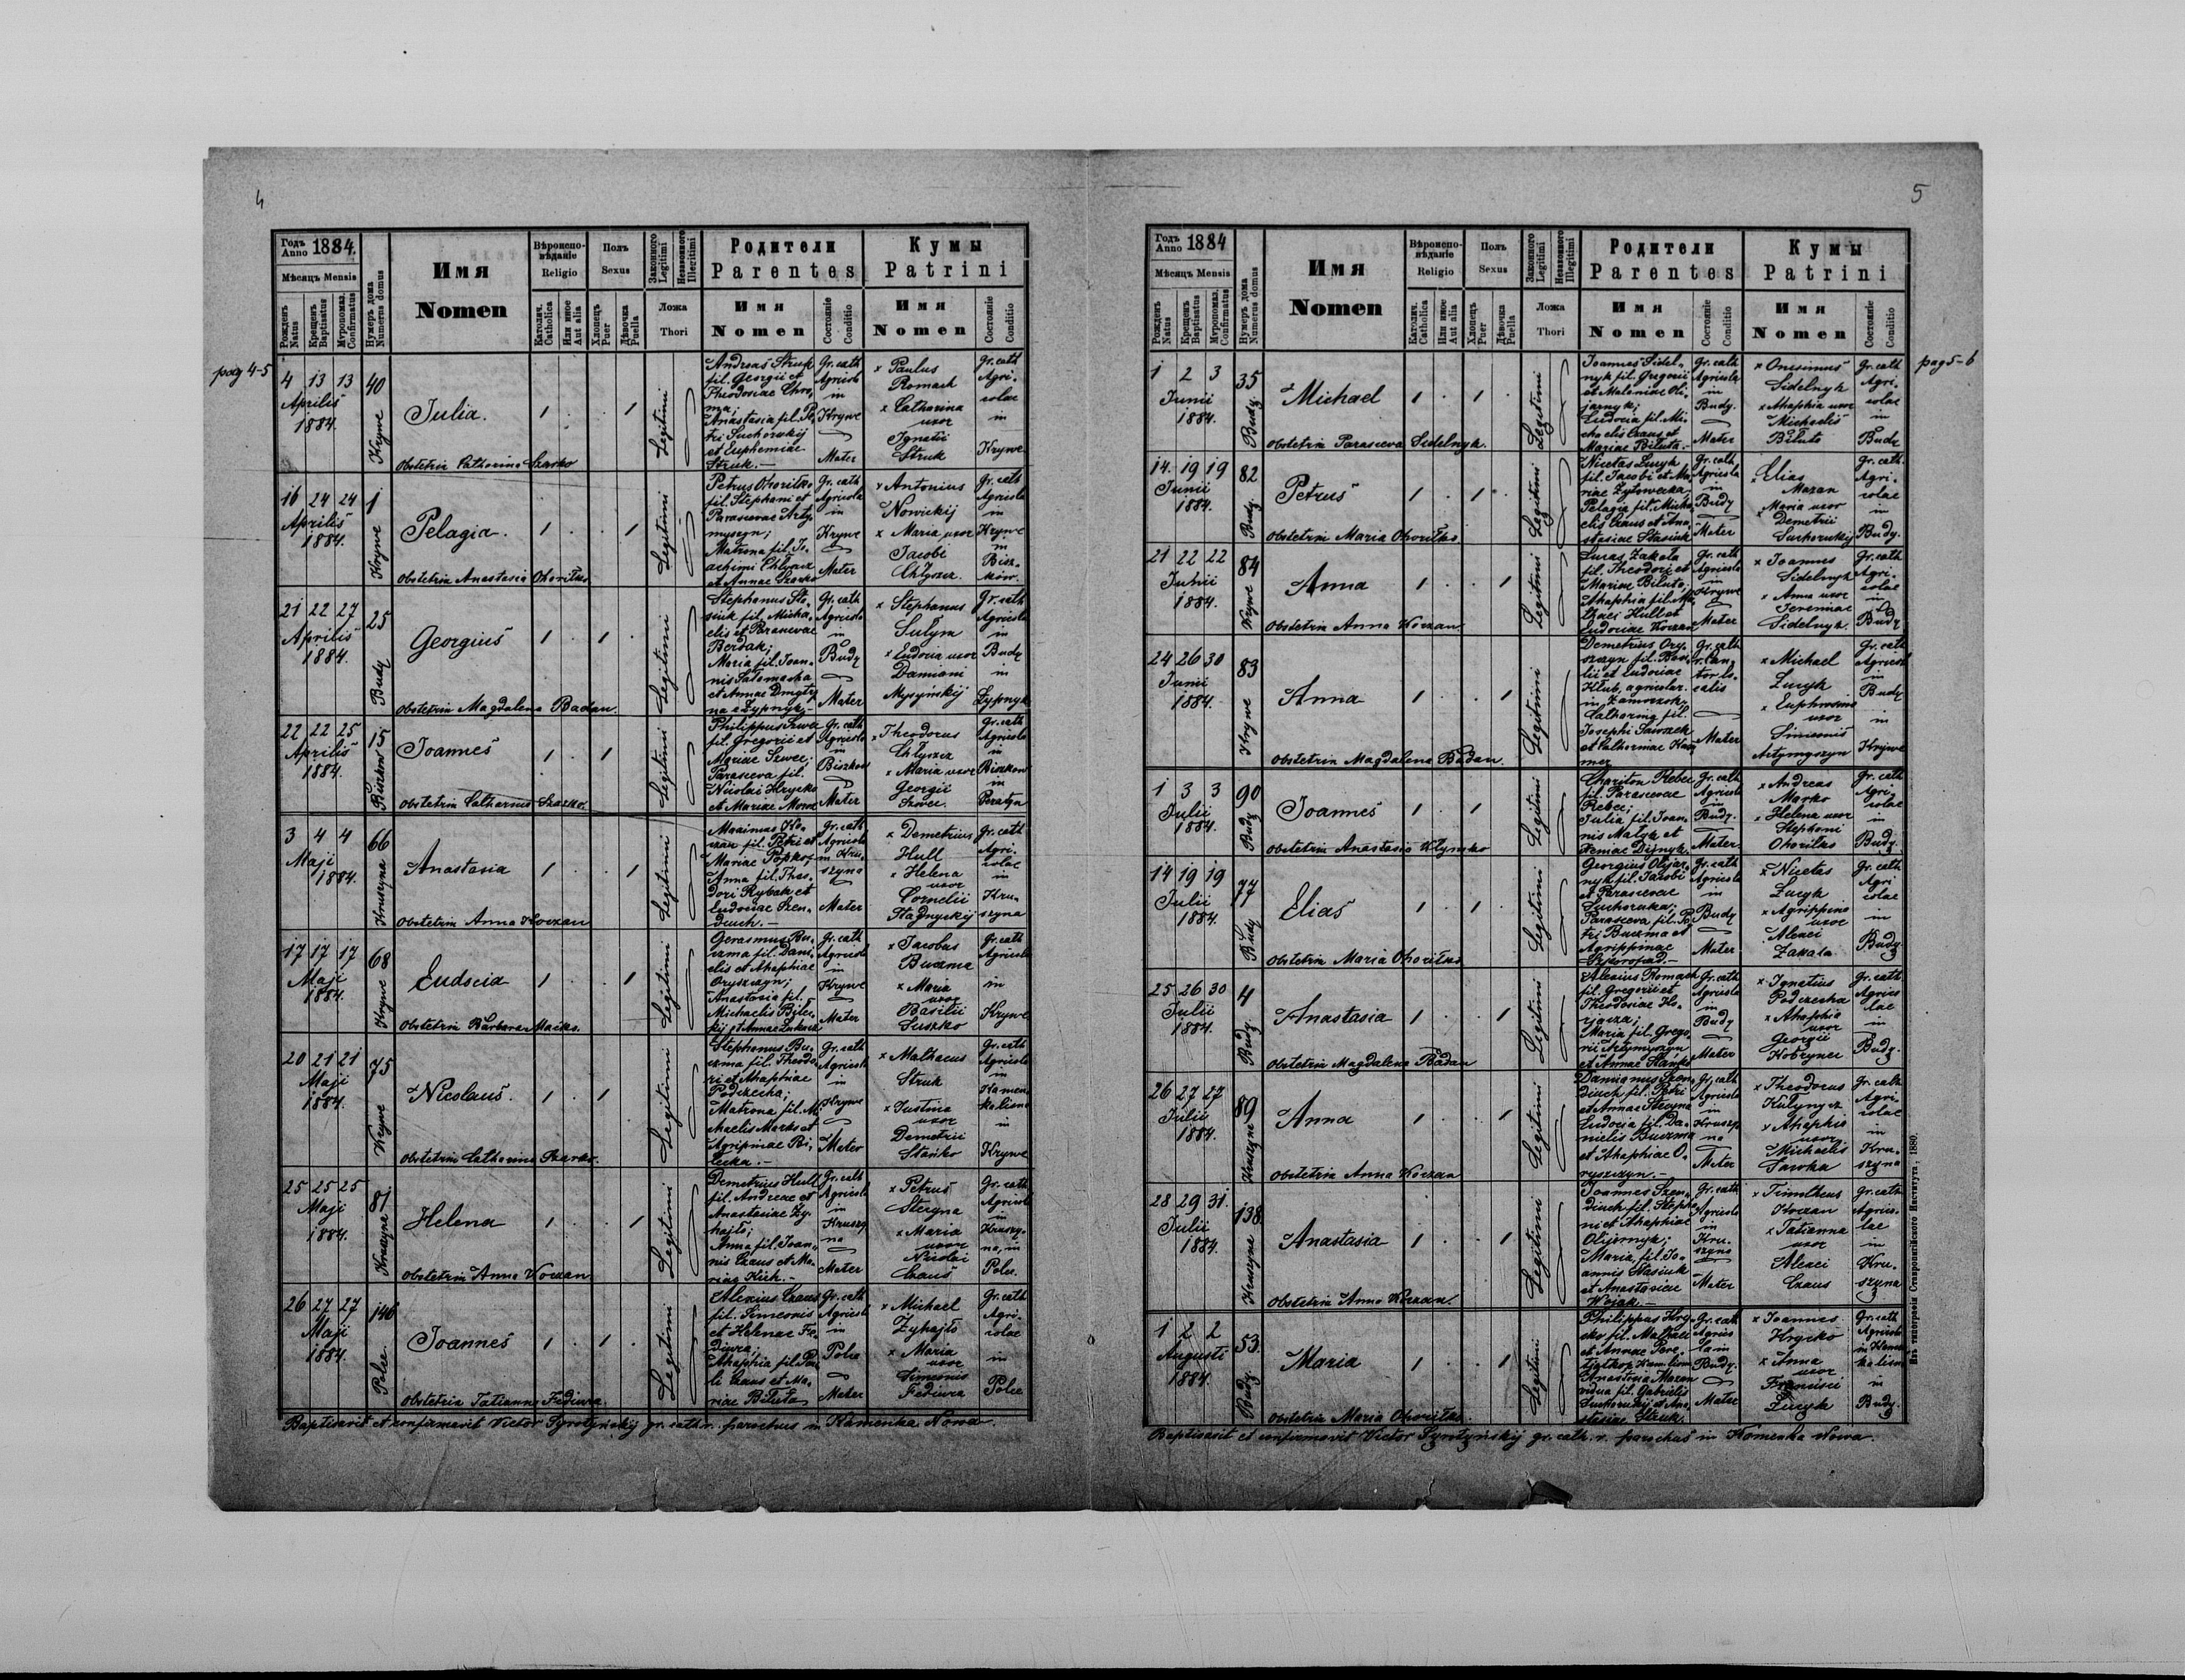 4
pag 4-5
Годъ 1884.
Anno
Мѣсяцъ Mensis
Рожденъ Natus
Крещенъ Baptisatus
Муропомаз. Confirmatus
Нумеръ дома Numerus domus
Имя
Nomen
Вѣроиспо-
вѣданіе
Religio
Католич. Catholica
Или иное Aut alia
Полъ
Sexus
Хлопецъ Puer
Дѣвочка Puella
Законного Legitimi
Незаконного Illegitimi
Ложа
Thori
Родители
Parentes
Имя
Nomen
Состояніе Conditio
Кумы
Patrini
Имя
Nomen
Состояніе Conditio
4 13 13
Aprilis
1884.
40
Krywe
Julia.
obstetrix Catharina Szarko
Legitimi
Andreas Struk
fil. Georgii et
Theodosiae Chro,
ma;
Anastasia fil. Pe
tri Suchorukij
et Euphemiae
Struk.—
Gr. cath
Agricola
in
Krywe
Mater
x Paulus
Romach
x Catharina
uxor
Ignatii
Struk
Gr. cath
Agri-
colae
in
Krywe
16 24 24
Aprilis
1884.
1
Krywe
Pelagia.
obstetrix Anastasia Ohoritko
Legitimi
Petrus Ohoritko
fil. Stephani et
Parascevae Arty,
myszyn;
Matrona fil. Jo,
achimi Chtyszcz
et Annae Szarko
Gr. cath
Agricola
in
Krywe
Mater
x Antonius
Nowickij
x Maria uxor
Jacobi
Chtyszcz.
Gr. cath
Agricola
in
Krywe
in
Bisz-
ków.
21 22 27
Aprilis
1884.
25
Budy
Georgius
obstetrix Magdalena Badan.
Legitimi
Stephanus Sta,
siuk fil. Micha,
elis et Parascevae
Berdak;
Maria fil. Joan,
nis Salamacha
et Annae Dmyty
na e Zypnyk.—
Gr. cath
Agricola
in
Budy
Mater
x Stephanus
Sutym
x Eudocia uxor
Damiani
Mysyńskij
Gr. cath
Agricola
in
Budy
in
Zypnyk
22 22 25
Aprilis
1884.
15
Biszków
Joannes
obstetrix Catharina Szarko.
Legitimi
Philippus Szwec
fil. Gregorii et
Mariae Szwec;
Parasceva fil.
Nicolai Hrycko
et Mariae Moroz
Gr. cath
Agricola
in
Biszkow
Mater
x Theodorus
Chtyszcz
x Maria uxor
Georgii
Szwec.
Gr. cath
Agricola
in
Biszkow
in
Peratyn
3 4 4
Maji
1884.
66
Kruszyna
Anastasia
obstetrix Anna Korzan
Legitimi
Maximus Ko-
rzan fil. Petri et
Mariae Popko;
Anna fil. Theo,
dori Rybak et
Eudociae Szen-
diuch.—
Gr. cath
Agricola
in Kru-
szyna
Mater
x Demetrius
Hull
x Helena
uxor
Cornelii
Hadnyckij
Gr. cath
Agri-
colae
in
Kru-
szyna
17 17 17
Maji
1884.
68
Krywe
Eudocia
obstetrix Barbara Macko.
Legitimi
Gerasimus Bu-
czma fil. Dani,
elis et Ahaphiae
Oryszczyn;
Anastasia fil.
Michaelis Bilec-
kij et Annae Lukasz
Gr. cath
Agricola
in
Krywe
Mater
x Jacobus
Buczma
x Maria
uxor
Basilii
Suszko
Gr. cath
Agricola
in
Krywe
20 21 21
Maji
1884.
75
Krywe
Nicolaus.
obstetrix Catharina Szarko.
Legitimi
Stephanus Bu-
czma fil. Theodo,
ri et Ahaphiae
Podczecha;
Matrona fil. Mi
chaelis Marko et
Agripinae Bi,
lecka.—
Gr. cath
Agricola
in
Krywe
Mater
x Mathaeus
Struk
x Justina
uxor
Demetrii
Stańko
Gr. cath
Agricola
in
Kamen,
ka lisna
in
Krywe
25 25 25
Maji
1884.
81
Kruszyna
Helena
obstetrix Anna Korzan
Legitimi
Demetrius Hull
fil. Andreae et
Anastasiae Zy-
hajto;
Anna fil. Joan,
nis Czaus et Ma-
riae Kich.—
Gr. cath
Agricola
in
Kruszy
na
Mater
x Petrus
Steryna
x Maria
uxor
Nicolai
Czaus
Gr. cath
Agricola
in
Kruszy-
na, in
Polce.
26 27 27
Maji
1884.
146
Polce.
Joannes
obstetrix Tatianna Fediura.
Legitimi
Alexius Czaus
fil. Simeonis
et Helenae Fe-
diura;
Ahaphia fil. Pau
li Czaus et Ma-
riae Bituta
Gr. cath
Agricola
in
Polce
Mater
x Michael
Zyhajto
x Maria
uxor
Simeonis
Fediura
Gr. cath
Agri-
colae
in
Polce
Baptisavit et confirmavit Victor Syrotyńskij gr. cath. r. parochus in Kamenka Nowa.
5
pag 5-6
Годъ 1884
Anno
Мѣсяцъ Mensis
Рожденъ Natus
Крещенъ Baptisatus
Муропомаз. Confirmatus
Нумеръ дома Numerus domus
Имя
Nomen
Вѣроиспо-
вѣданіе
Religio
Католич. Catholica
Или иное Aut alia
Полъ
Sexus
Хлопецъ Puer
Дѣвочка Puella
Законного Legitimi
Незаконного Illegitimi
Ложа
Thori
Родители
Parentes
Имя
Nomen
Состояніе Conditio
Кумы
Patrini
Имя
Nomen
Состояніе Conditio
1 2 3
Junii
1884.
35
Budy.
Michael
obstetrix Parasceva Sidelnyk.
Legitimi
Joannes Sidel,
nyk fil. Gregorii
et Melaniae Oli-
jarnyk;
Eudocia fil. Mi-
chaelis Czaus et
Mariae Bituta.—
Gr. cath
Agricola
in
Budy.
Mater
x Onesimus
Sidelnyk
x Ahaphia uxor
Michaelis
Bituta
Gr. cath
Agri-
colae
in
Budy
14. 19 19
Junii
1884.
82
Budy.
Petrus
obstetrix Maria Ohoritko
Legitimi
Nicetas Lucyk
fil. Jacobi et Ma,
riae Zytowecka;
Pelagia fil. Micha,
elis Czaus et Ana-
stasiae Stasiuk
Gr. cath
Agricola
in
Budy
Mater
x Elias
Mazan
x Maria uxor
Demetrii
Suchorukij
Gr. cath.
Agri-
colae
in
Budy.
21 22 22
Junii
1884.
84
Krywe
Anna
obstetrix Anna Korzan
Legitimi
Lucas Zakala
fil. Theodori et
Mariae Bituta;
Ahaphia fil. Ma,
thaei Hull et
Eudociae Korzan
Gr. cath
Agricola
in
Krywe
Mater
x Joannes
Sidelnyk
x Anna uxor
Jeremiae
Sidelnyk.
Gr. cath
Agri-
colae
in
Budy
24 26 30
Junii
1884.
83
Krywe
Anna
obstetrix Magdalena Badan.
Legitimi
Demetrius Ory-
szczyn fil. Basi,
lii et Eudociae
Hlub, agricolar.
in Zamoczok;
Catharina fil.
Josephi Sawrzek
et Catharinae Ham
mer
Gr. cath
r. Can,
tor lo-
calis
Mater
x Michael
Lucyk
x Euphrosina
uxor
Simeonis
Artymyszyn
Gr. cath
Agricol
in
Budy
in
Krywe
1 3 3
Julii
1884.
90
Budy
Joannes
obstetrix Anastasia Klymko
Legitimi
Chariton Rebec
fil. Parascevae
Rebec;
Julia fil. Joan-
nis Matyk et
Xeniae Dijnyk.
Gr. cath
Agricola
in
Budy.
Mater.
x Andreas
Marko
x Helena uxor
Stephani
Ohoritko
Gr. cath
Agri-
colae
in
Budy.
14 19 19
Julii
1884.
77
Budy
Elias
obstetrix Maria Ohoritko
Legitimi
Georgius Olijar-
nyk fil. Jacobi
et Parascevae
Suchoruka;
Parasceva fil. Pe
tri Buczma et
Agrippinae
Skoropad.—
Gr. cath
Agricola
in
Budy
Mater
x Nicetas
Lucyk
x Agrippina
uxor
Alexei
Zakala
Gr. cath
Agri
colae
in
Budy.
25 26 30
Julii
1884.
4
Budy.
Anastasia
obstetrix Magdalena Badan
Legitimi
Alexius Romach
fil. Gregorii et
Theodosiae Ho-
rjacza;
Maria fil. Grego,
rii Artymyszyn
et Annae Stańko
Gr. cath
Agricola
in
Budy
Mater
x Ignatius
Podczecha
x Ahaphia
uxor
Georgii
Kobryner
Gr. cath
Agrico
lae
in
Budy.
26 27 27
Julii
1884.
89
Kruszyna
Anna
obstetrix Anna Korzan
Legitimi
Damianus Szen,
diuch fil. Petri
et Annae Steryna
Eudocia fil. Da-
nielis Buczma
et Ahaphiae O-
ryszczyn.—
Gr. cath
Agricola
in
Kruszy
na
Mater
x Theodorus
Kutynycz
x Ahaphia
uxor
Michaelis
Sawka
Gr. cath
Agri-
colae
in
Kru-
szyna
28 29 31.
Julii
1884.
138.
Kruszyna
Anastasia
obstetrix Anna Korzan.
Legitimi
Joannes Szen-
diuch fil. Stepha
ni et Ahaphiae
Olijarnyk;
Maria, fil. Jo-
annis Stasiuk
et Anastasiae
Wojak.—
Gr. cath
Agricola
in
Kru-
szyna
Mater
x Timotheus
Korzan
x Tatianna
uxor
Alexei
Czaus
Gr. cath
Agrico-
lae
in
Kru-
szyna
1 2 2
Augusti
1884.
53.
Budy
Maria
obstetrix Maria Ohoritko.
Legitimi
Philippus Hry-
cko fil. Mathaei
et Annae Pere-
Anastasia Mazan
vidua fil. Gabrielis
Suchorukij et Ana-
stasiae Struk.
Gr. cath
Agrico
la in
Budy.
Mater
x Joannes
Hrycko
x Anna
uxor
Francisci
Lucyk
Gr. cath
Agricola
in Kamen
ka lisna
in
Budy.
Baptisavit et confirmavit Victor Syrotyńskij gr. cath. r. parochus in Kamenka Nowa.
Изъ типографіи Ставропигійского Института, 1880.